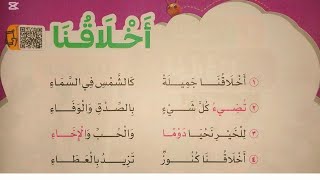 أَخْلَاقُنَا
١ أَخْلَاقُنَا جَمِيلَةْ كَالشَّمْسِ فِي السَّمَاءِ
٢ تُضِيءُ كُلَّ شَيْءٍ بِالصِّدْقِ وَالْوَفَاءِ
٣ لِلْخَيْرِ نَحْيَا دَوْمًا وَالْحُبِّ وَالْإِخَاءِ
٤ أَخْلَاقُنَا كُنُوزٌ تَزِيدُ بِالْعَطَاءِ